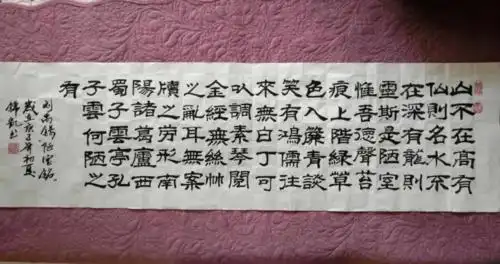 山不在高有
仙則名水不
在深有龍則
靈斯是陋室
惟吾德馨苔
痕上階綠草
色入簾青談
笑有鴻儒往
來無白丁可
以調素琴閱
金經無絲竹
之亂耳無案
牘之勞形南
陽諸葛廬西
蜀子雲亭孔
子雲何陋之
有
劉禹錫陋室銘
初夏